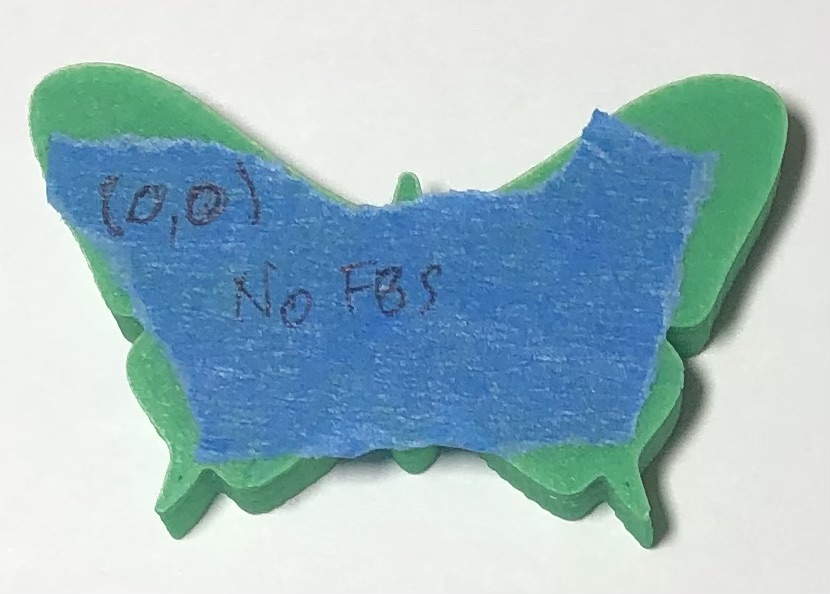 (0,0)
No FBS